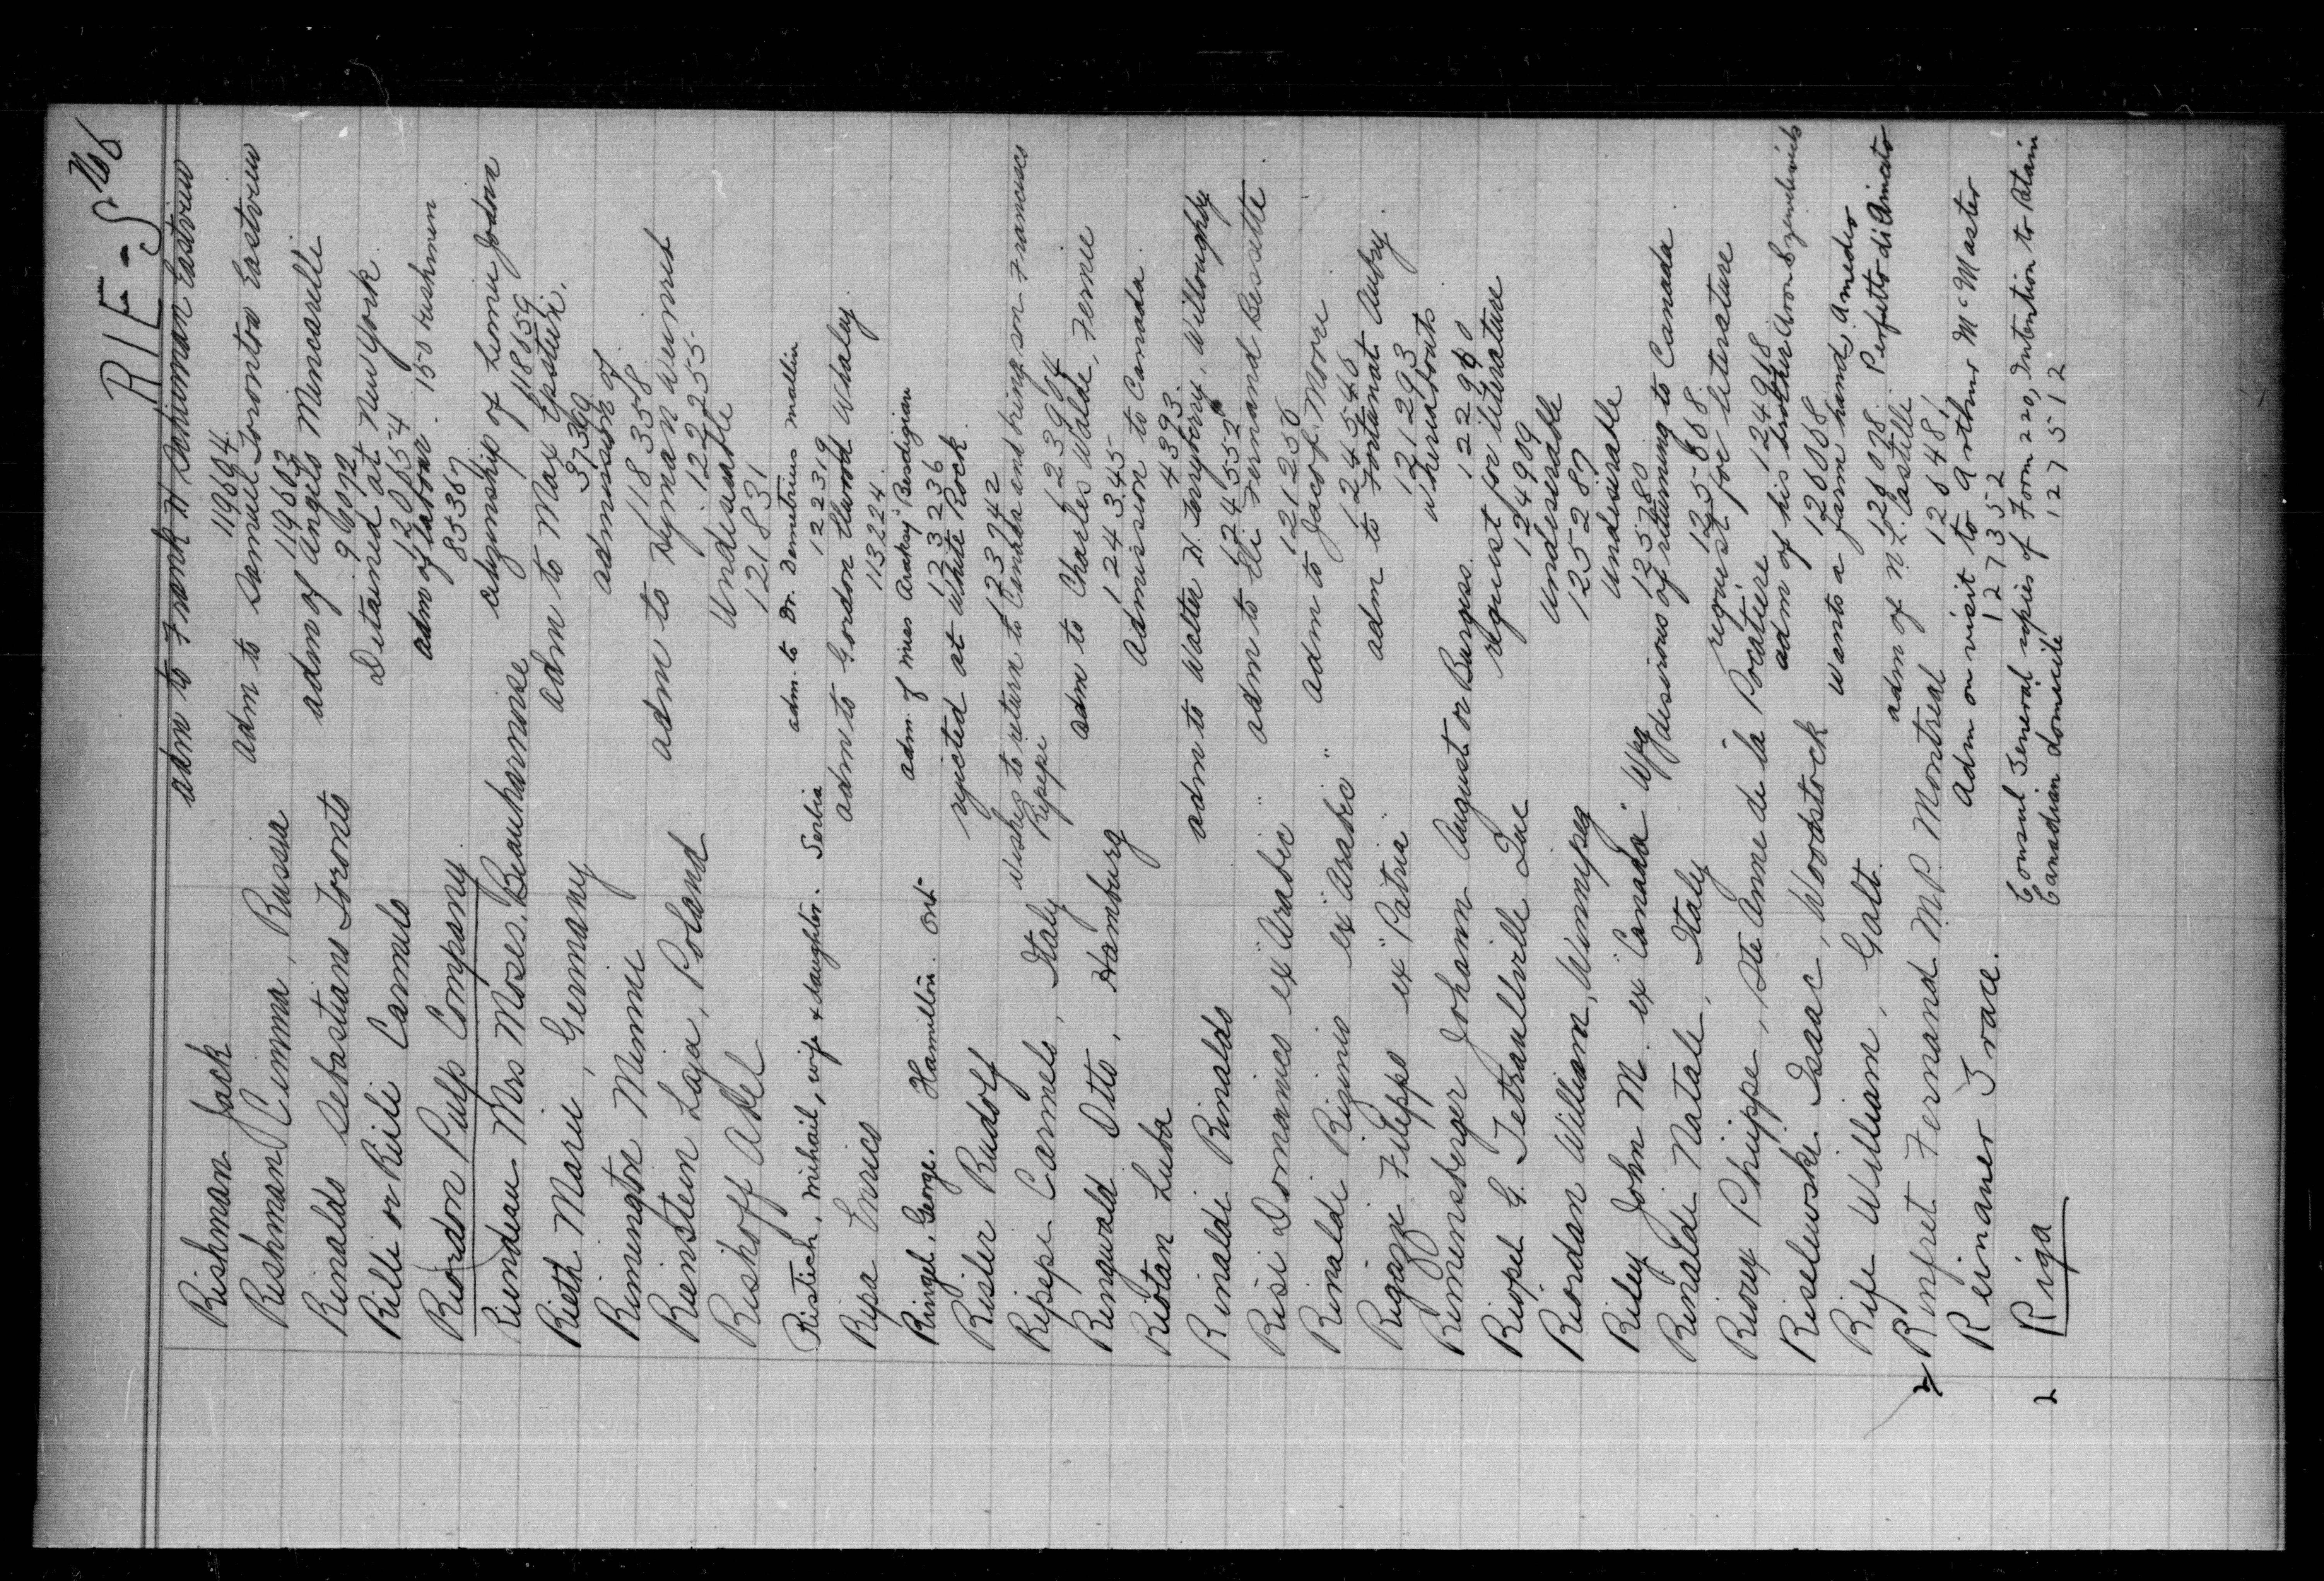 RIE-S No 6
adm to Frank H Schieman Eastview
Rishman Jack 119604
adm to Samuel Torontow Eastview
Rishman Cimma, Russia 119603
adm of Angelo Mincarelli
Rinaldo Sebastiano Toronto 96072
Detained at New York
Rilli or Riili Carmelo 120654
adm of labour. 150 bushmen
Riordon Pulp Company. 85367
citizenship of Lomie Jodoin
Riendeau Mrs Moses, Beauharnoise 118659
adm to Max Epstein.
Rieth Marie, Germany 37369
admission of
Rimington Minnie 118358
adm to Hyman Wermut
Rienstein Laja, Poland 122255
Undesirable
Rishoff Adel 121831
adm. to Dr. Demetrius mallin
Ristich, mihail, wife & daughter. Serbia 122319
adm to Gordon Elwood Whaley.
Ripa Enrico 113224
adm. of miss Araksy Besdigian
Ringel, George. Hamilton. ont- 123236
rejected at White Rock.
Risler Rudolf 123742
wishes to return to Canada and bring son Francisco
Rippe Carmelo, Italy Rippe 123964
adm to Charles Walde, Fernie
Ringwald Otto, Hamburg 124345
Admission to Canada.
Riotan Luba 4393
adm to Walter H. Terryberry, Willoughby
Rinaldi Rinaldo 124552
adm to Eli Fernand Bessette.
Risi Domanico ex "Arabic" 121256
adm to Jacob Moore
Rinaldi Riginio ex "Arabic" 124546
adm to Fortunat Auby.
Rigazzi Filippo ex "Patria" 121293
Whereabouts
Rimensberger Johann August or Burgess. 122960
request for literature
Riopel G. Tetraultville Que 124909
Undesirable
Riordan William, Winnipeg 125287
Undesirable
Riley John M. ex "Canada" Wpg 125780
desirous of returning to Canada.
Rinaldi Natale, Italy 125868
request for literature
Rioux Philippe, Ste Anne de la Pocatière 124918
adm of his brother Aron
Riselewoski Isaac, Woodstock 126068
wants a farm hand, Amedeo Perfetto di Amicato
Rife William, Galt. 126078
adm of N. L. Castille
Rinfret Fernand M.P. Montreal 126481
Adm on visit to Arthur McMaster
Rinaner Grace. 127352
Consul General copies of Form 220, Intention to Retain
Riga Canadian domicile 127512